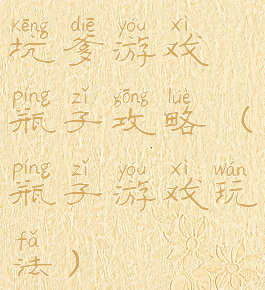 kēng diē yóu xì
坑爹游戏
píng zǐ gōng lüè
瓶子攻略（
píng zǐ yóu xì wán
瓶子游戏玩
fǎ
法）